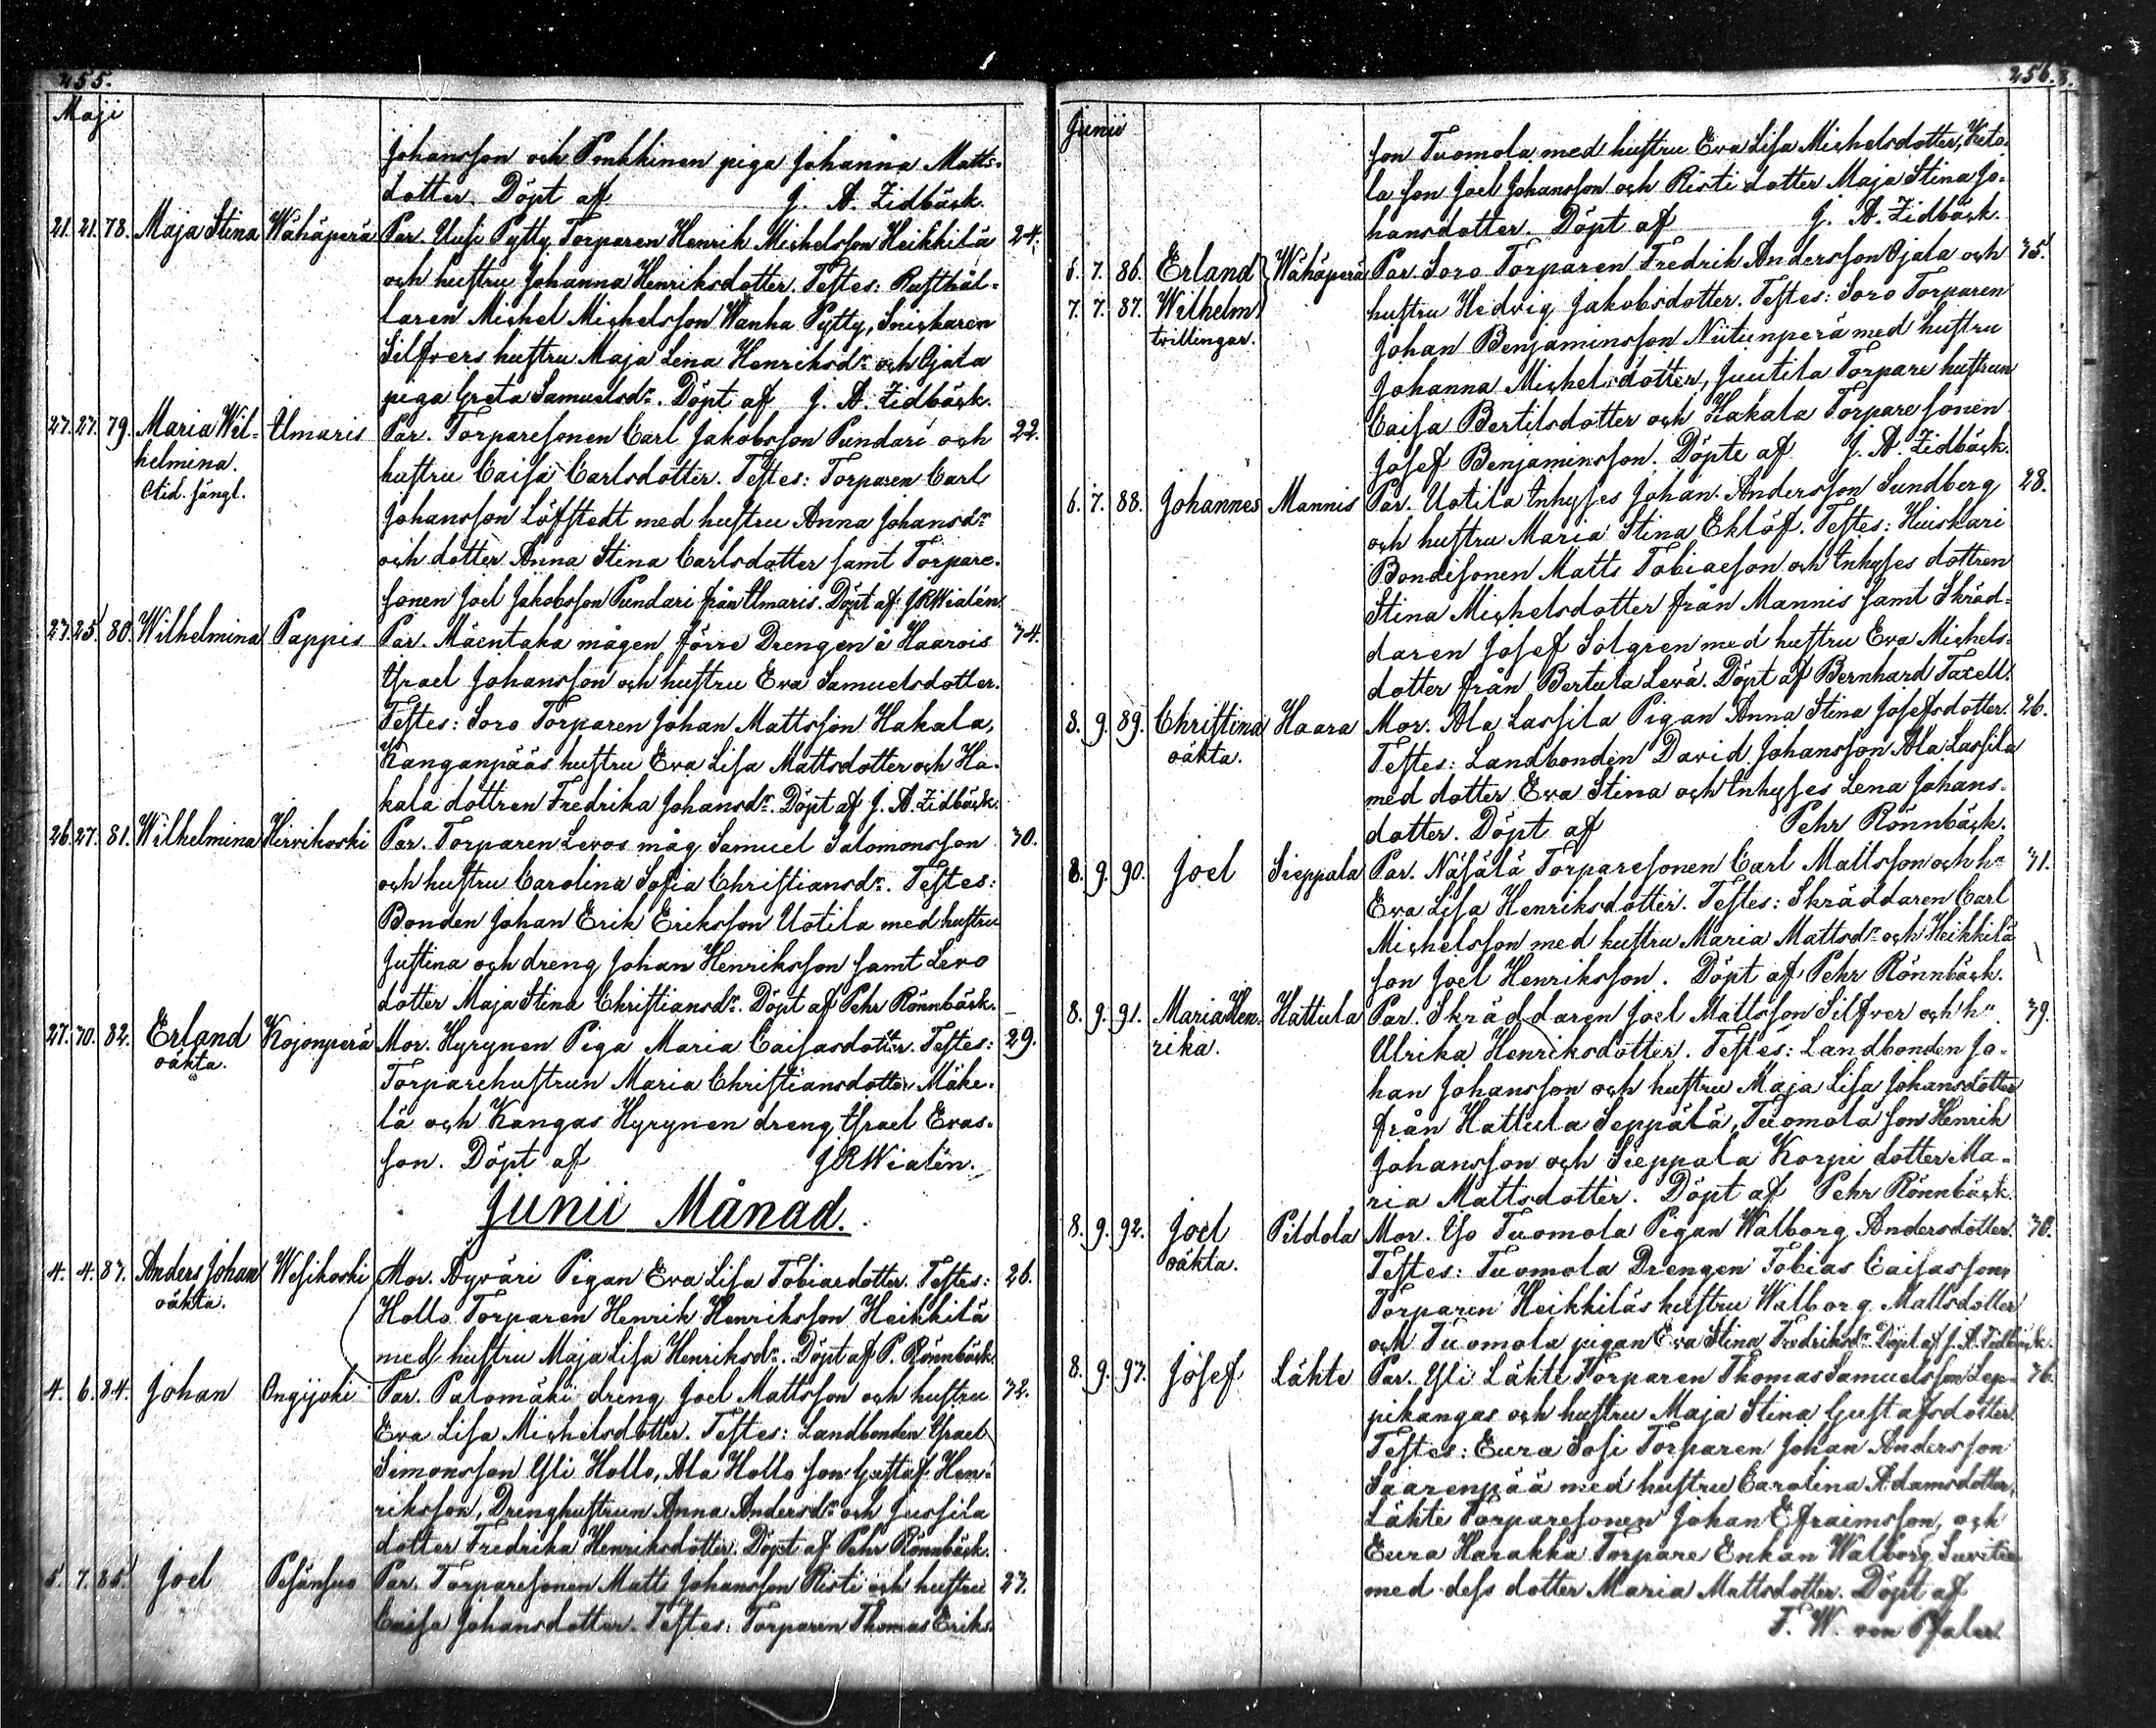 255.
Maji
Johansson och Pmkkinen piga Johanna Matts-
dotter. Döpt af J. A. Zidbäck.
21. 21. 78. Maja Stina Wähäperä Par. Uusi Pytty Torparen Henrik Michelsson Heikkilä 24.
och hustru Johanna Henriksdotter. Testes: Rusthål-
laren Michel Michelsson Wanha Pytty, Snickaren
Silfvers hustru Maja Lena Henriksdr. och Ojala
piga Greta Samuelsdr. Döpt af J. A. Zidbäck.
27. 27. 79. Maria Wil- Ilmaris Par. Torparesonen Carl Jakobsson Pundari och 22.
helmina. hustru Caisa Carlsdotter. Testes: Torparen Carl
Johansson Löfstedt med hustru Anna Johansdr.
och dotter Anna Stina Carlsdotter samt Torpare-
sonen Joel Jakobsson Pundari från Ilmaris. Döpt af JRWialén.
23. 25. 80. Wilhelmina Pappis Par. Mäentaka mågen förre Drengen å Haarois 34.
Israel Johansson och hustru Eva Samuelsdotter.
Testes: Soro Torparen Johan Mattsson Hakala,
Kanganpääs hustru Eva Lisa Mattsdotter och Ha-
kala dottren Fredrika Johansdr. Döpt af J. A. Zidbäck.
26. 27. 81. Wilhelmina Hirvikoski Par. Torparen Levos måg Samuel Salomonsson 30.
och hustru Carolina Sofia Christiansdr. Testes:
Bonden Johan Erik Eriksson Uotila med hustru
Justina och dreng Johan Henriksson samt Levo
dotter Maja Stina Christiansdr. Döpt af Pehr Rönnbäck.
27. 30. 82. Erland Kojonperä Mor. Hyrynen Piga Maria Caisasdotter. Testes: 29.
oäkta. Torparehustrun Maria Christiansdotter Mäke-
lä och Kangas Hyrynen dreng Israel Evas-
son. Döpt af JRWialén.
Junii Månad.
4. 4. 83. Anders Johan Wesikoski Mor. Äyräri Pigan Eva Lisa Tobiaedotter. Testes: 26.
oäkta. Hollo Torparen Henrik Henriksson Heikkilä
med hustru Maja Lisa Henriksdr. Döpt af P. Rönnbäck.
4. 6. 84. Johan Ongijoki Par. Palomäki dreng Joel Mattsson och hustru 32.
Eva Lisa Michelsdotter. Testes: Landbonden Israel
Simonsson Yli Hollo, Ala Hollo son Gustaf Hen-
riksson, Drenghustrun Anna Andersdr. och Jussila
dotter Fredrika Henriksdotter. Döpt af Pehr Rönnbäck.
5. 7. 85. Joel Pesänsuo Par. Torparesonen Matts Johansson Risti och hustru 23.
Caisa Johansdotter. Testes: Torparen Thomas Eriks-
256.
Junii
son Tuomola med hustru Eva Lisa Michelsdotter, Keto-
la son Joel Johansson och Risti dotter Maja Stina Jo-
hansdotter. Döpt af J. A. Zidbäck.
6. 7. 86. Erland Wähäperä Par. Soro Torparen Fredrik Andersson Ojala och 35.
7. 7. 87. Wilhelm hustru Hedvig Jakobsdotter. Testes: Soro Torparen
tvillingar. Johan Benjaminsson Niitunperä med hustru
Johanna Michelsdotter, Juutila Torpare hustrun
Caisa Bertilsdotter och Hakala Torpare sonen
Josef Benjaminsson. Döpte af J. A. Zidbäck.
6. 7. 88. Johannes Mannis Par. Uotila Inhyses Johan Andersson Sundberg 28.
och hustru Maria Stina Eklöf. Testes: Huiskari
Bondesonen Matts Tobiaeson och Inhyses dottren
Stina Michelsdotter från Mannis samt Skräd-
daren Josef Solgren med hustru Eva Michels-
dotter från Bertula Levä. Döpt af Bernhard Taxell.
8. 9. 89. Christina Haara Mor. Ala Lassila Pigan Anna Stina Josefsdotter. 26.
oäkta. Testes: Landbonden David Johansson Ala Lassila
med dotter Eva Stina och Inhyses Lena Johans-
dotter. Döpt af Pehr Rönnbäck.
8. 9. 90. Joel Sieppala Par. Näsälä Torparesonen Carl Mattsson och hu 31.
Eva Lisa Henriksdotter. Testes: Skräddaren Carl
Michelsson med hustru Maria Mattsdr. och Heikkilä
son Joel Henriksson. Döpt af Pehr Rönnbäck.
8. 9. 91. Maria Hen- Hattula Par. Skräddaren Joel Mattsson Silfver och hu 39.
rika. Ulrika Henriksdotter. Testes: Landbonden Jo-
han Johansson och hustru Maja Lisa Johansdotter
från Hattula Seppälä, Tuomola son Henrik
Johansson och Sieppala Korpi dotter Ma-
ria Mattsdotter. Döpt af Pehr Rönnbäck.
8. 9. 92. Joel Pildola Mor. Iso Tuomola Pigan Walborg Andersdotter. 30.
oäkta. Testes: Tuomola Drengen Tobias Caisasson,
Torparen Heikkiläs hustru Walborg Mattsdotter
och Tuomola pigan Eva Stina Fredriksdr. Döpt af J. A. Zidbäck.
8. 9. 93. Josef Lähte Par. Yli Lähte Torparen Thomas Samuelsson Lep- 36.
pikangas och hustru Maja Stina Gustafsdotter.
Testes: Eura Sosi Torparen Johan Andersson
Saarenpää med hustru Carolina Adamsdotter,
Lähte Torparesonen Johan Efraimsson, och
Eura Harakka Torpare Enkan Walborg
med dess dotter Maria Mattsdotter. Döpt af
T. W. von Pfaler.